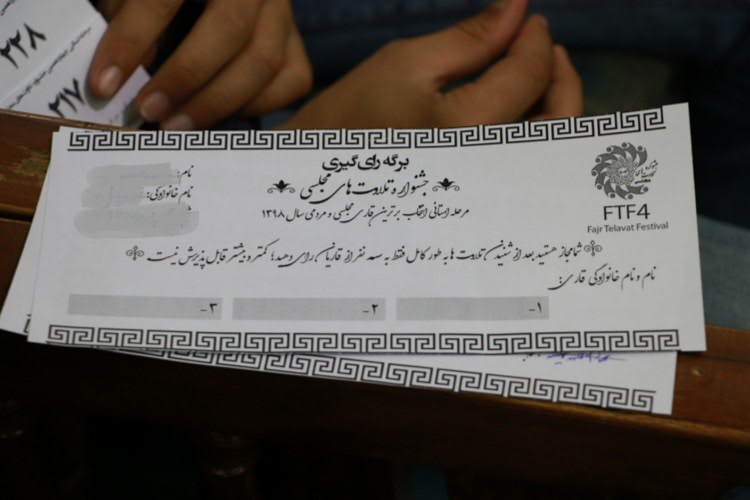 ۲۲۸
۲۱۷
برگه رای گیری
جشنواره تلاوت های مجلسی
مرحله استانی انتخاب برترین قاری مجلسی و مردمی سال ۱۳۹۸
نام:
نام خانوادگی:
FTF4
Fajr Telavat Festival
شما مجاز هستید بعد از شنیدن تلاوت ها به طور کامل فقط به سه نفر از قاریان رای دهید؛ کمتر و بیشتر قابل پذیرش نیست
نام و نام خانوادگی قاری:
۱-
۲-
۳-